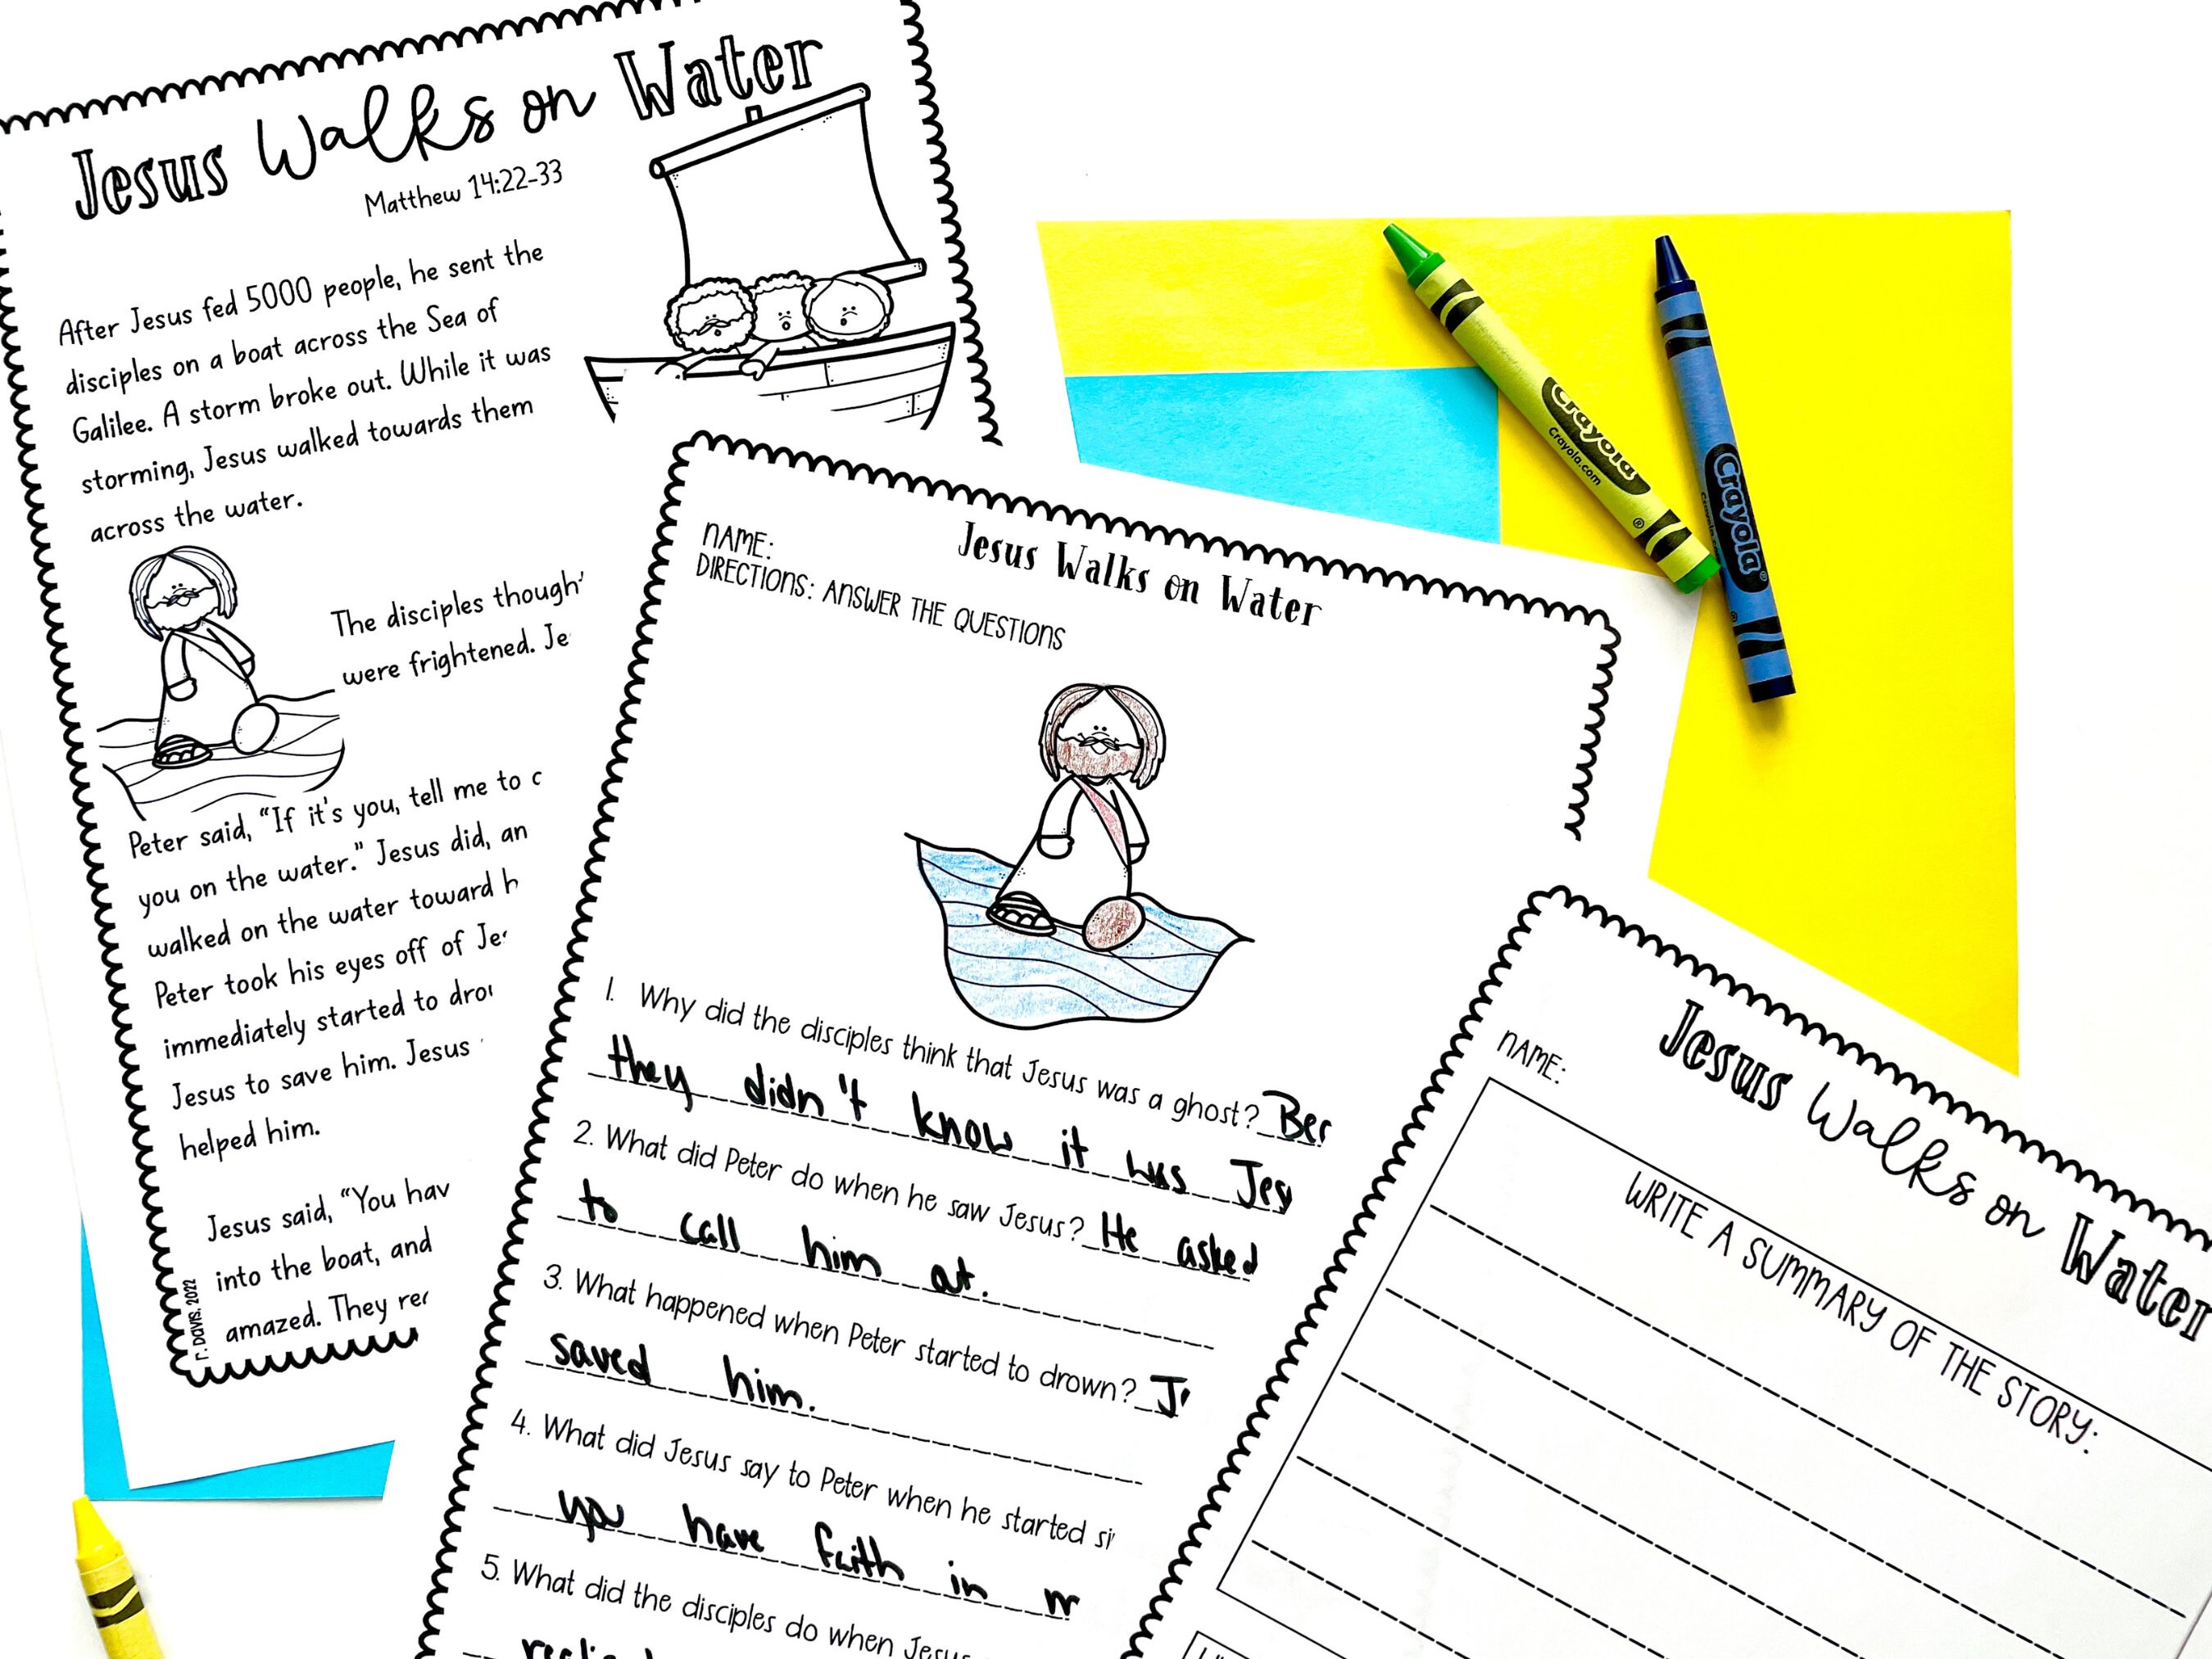 Jesus Walks on Water
Matthew 14:22-33
After Jesus fed 5000 people, he sent the
disciples on a boat across the Sea of
Galilee. A storm broke out. While it was
storming, Jesus walked towards them
across the water.
The disciples
were frightened.
Peter said, "If it's you, tell me to
you on the water." Jesus did,
walked on the water toward
Peter took his eyes off of
immediately started to
Jesus to save him. Jesus
helped him.
Jesus said, "You
into the boat, and
amazed. They
r. Davis, 2022
Jesus Walks on Water
NAME:
DIRECTIONS: ANSWER THE QUESTIONS
1. Why did the disciples think that Jesus was a ghost?
they didn't know it was
2. What did Peter do when he saw Jesus? He asked
to call him at.
3. What happened when Peter started to drown?
saved him.
4. What did Jesus say to Peter when he started
you have faith in
5. What did the disciples do when
Jesus Walks on Water
NAME:
WRITE A SUMMARY OF THE STORY:
Crayola
Crayola.com
Crayola